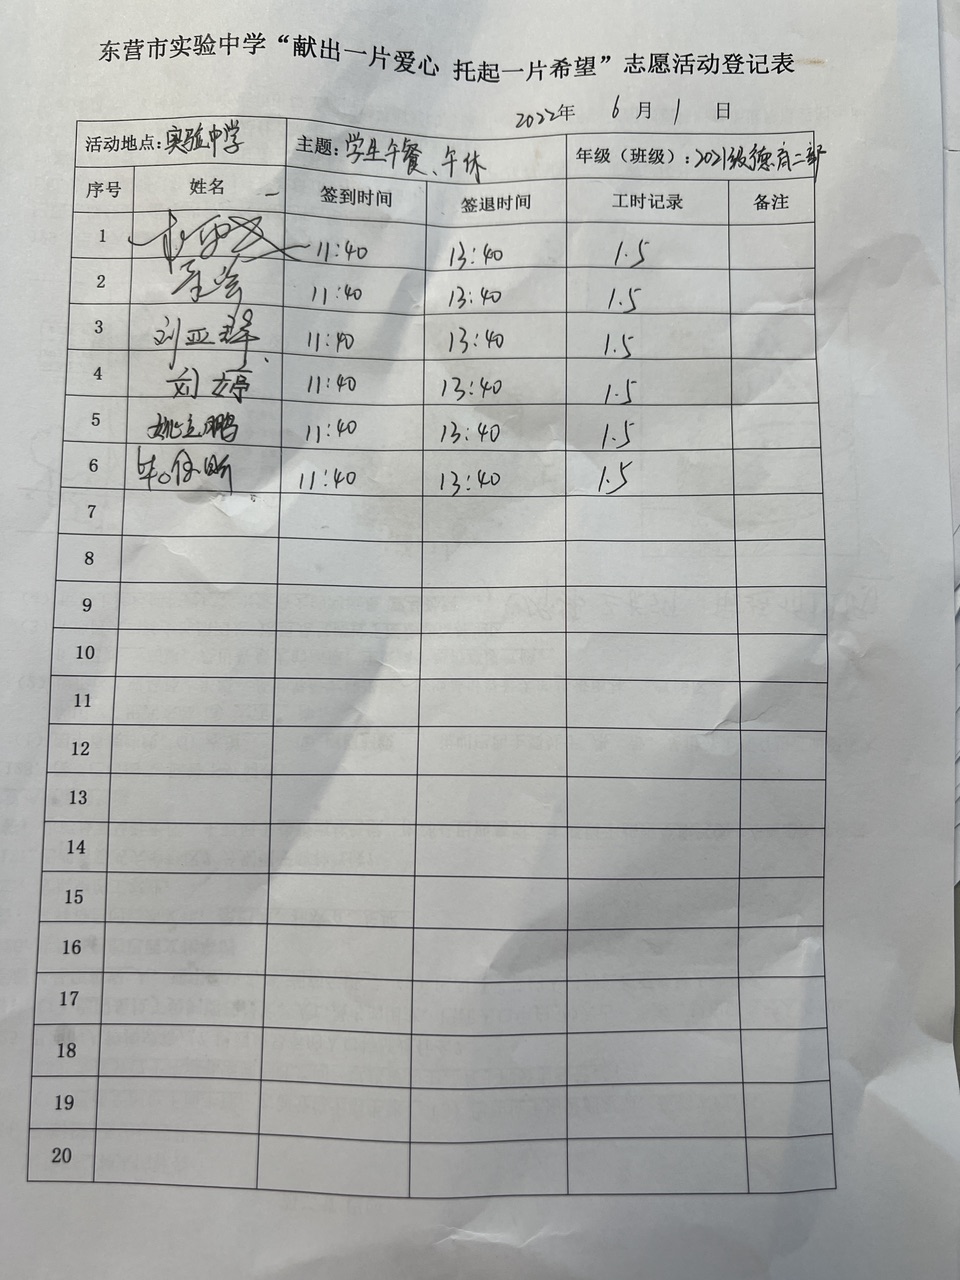 东营市实验中学“献出一片爱心 托起一片希望”志愿活动登记表
2022年 6 月 1 日
活动地点:实验中学 主题:学生午餐、午休 年级（班级）:2021级德育二部
序号 姓名 签到时间 签退时间 工时记录 备注
1 11:40 13:40 1.5
2 11:40 13:40 1.5
3 刘亚 11:40 13:40 1.5
4 刘婷 11:40 13:40 1.5
5 姚立鹏 11:40 13:40 1.5
6 11:40 13:40 1.5
7
8
9
10
11
12
13
14
15
16
17
18
19
20